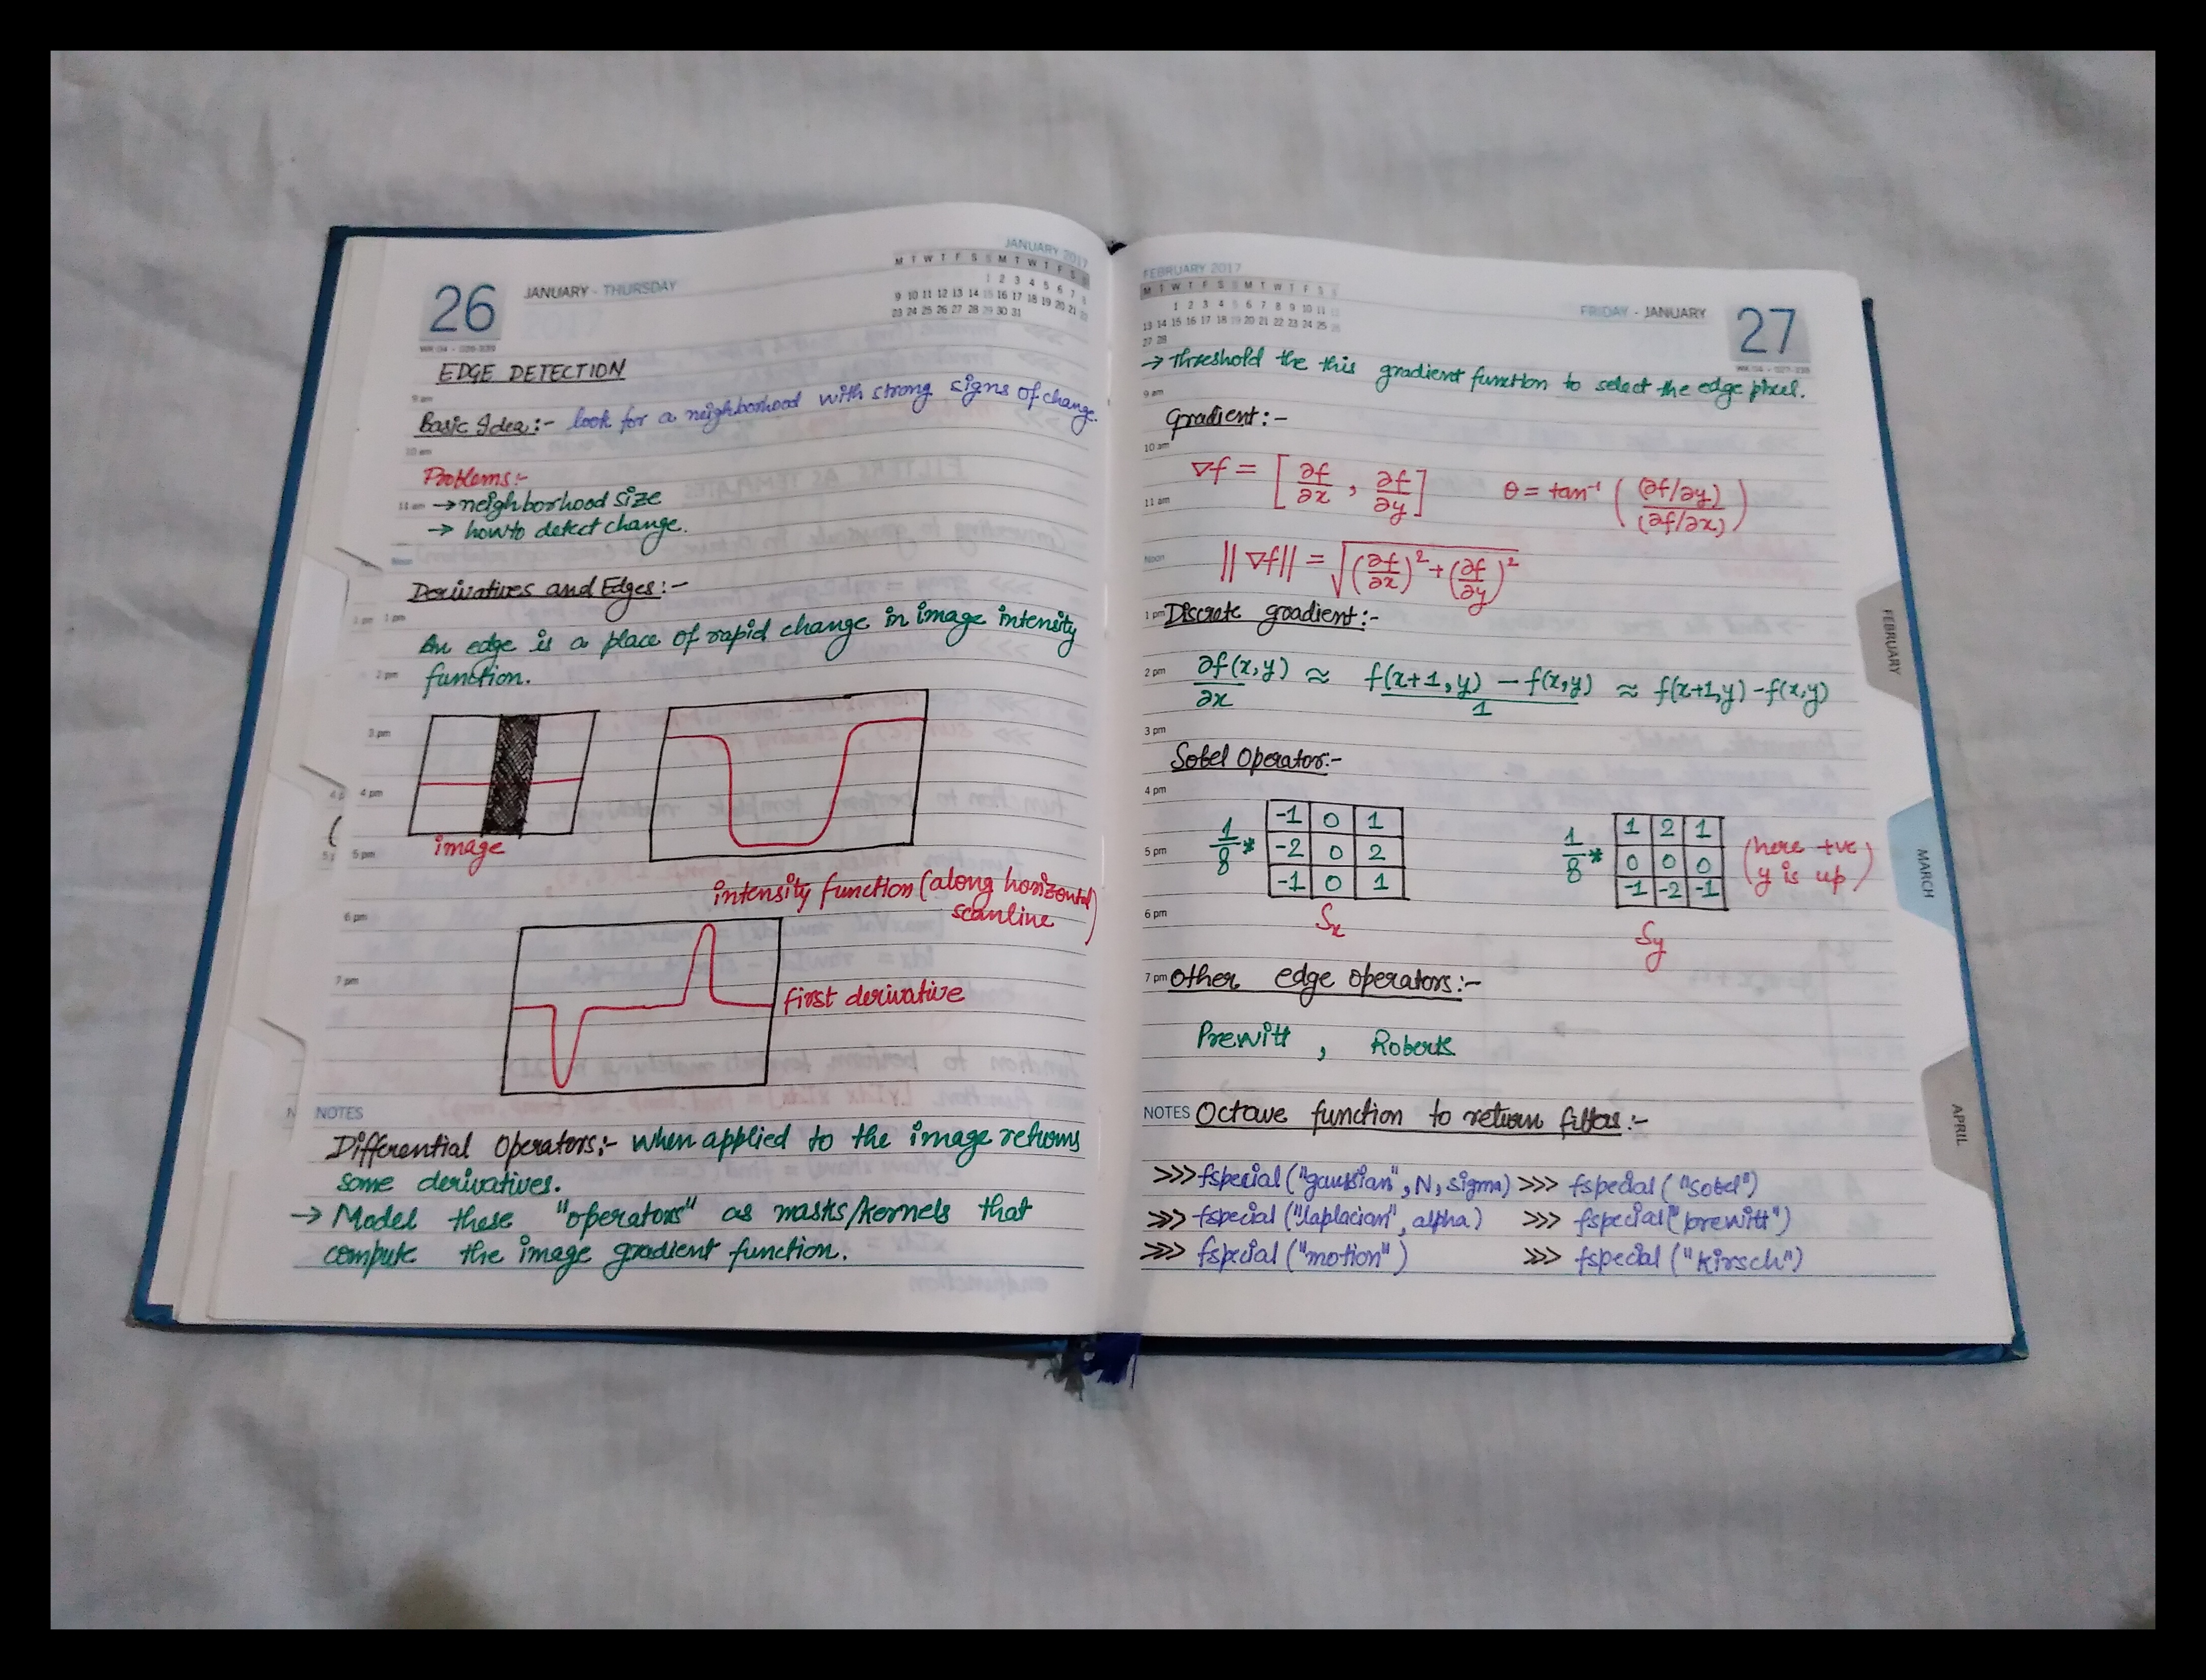 JANUARY 2017
M T W T F S S M T W T F S S
1 2 3 4 5 6 7 8
9 10 11 12 13 14 15 16 17 18 19 20 21 22
23 24 25 26 27 28 29 30 31
26 JANUARY - THURSDAY
EDGE DETECTION
9 am
Basic Idea:- look for a neighborhood with strong signs of change.
10 am
Problems:-
11 am → neighborhood size
→ how to detect change.
Noon
Derivatives and Edges:-
1 pm 1 pm
An edge is a place of rapid change in image intensity
2 pm function.
3 pm
4 pm
image
5 pm
intensity function (along horizontal
scanline)
6 pm
7 pm
first derivative
NOTES
Differential Operators:- when applied to the image returns
some derivatives.
→ Model these "operators" as masks/kernels that
compute the image gradient function.
FEBRUARY 2017
M T W T F S S M T W T F S S
1 2 3 4 5 6 7 8 9 10 11 12
13 14 15 16 17 18 19 20 21 22 23 24 25 26
27 28
FRIDAY - JANUARY 27
→ Threshold the this gradient function to select the edge pixel.
9 am
Gradient:-
10 am
∇f = [∂f/∂x , ∂f/∂y] θ = tan⁻¹ ((∂f/∂y)/(∂f/∂x))
11 am
Noon
||∇f|| = √((∂f/∂x)² + (∂f/∂y)²)
1 pm Discrete gradient:-
2 pm ∂f(x,y)/∂x ≈ f(x+1,y) - f(x,y)/1 ≈ f(x+1,y) - f(x,y)
3 pm
Sobel Operator:-
4 pm
-1 0 1 1 2 1
5 pm 1/8 * -2 0 2 1/8 * 0 0 0 (here +ve y is up)
-1 0 1 -1 -2 -1
6 pm
Sx Sy
7 pm Other edge operators:-
Prewitt , Roberts
NOTES Octave function to return filters:-
>>> fspecial("gaussian", N, sigma) >>> fspecial("sobel")
>>> fspecial("laplacian", alpha) >>> fspecial("prewitt")
>>> fspecial("motion") >>> fspecial("kirsch")
FEBRUARY
MARCH
APRIL